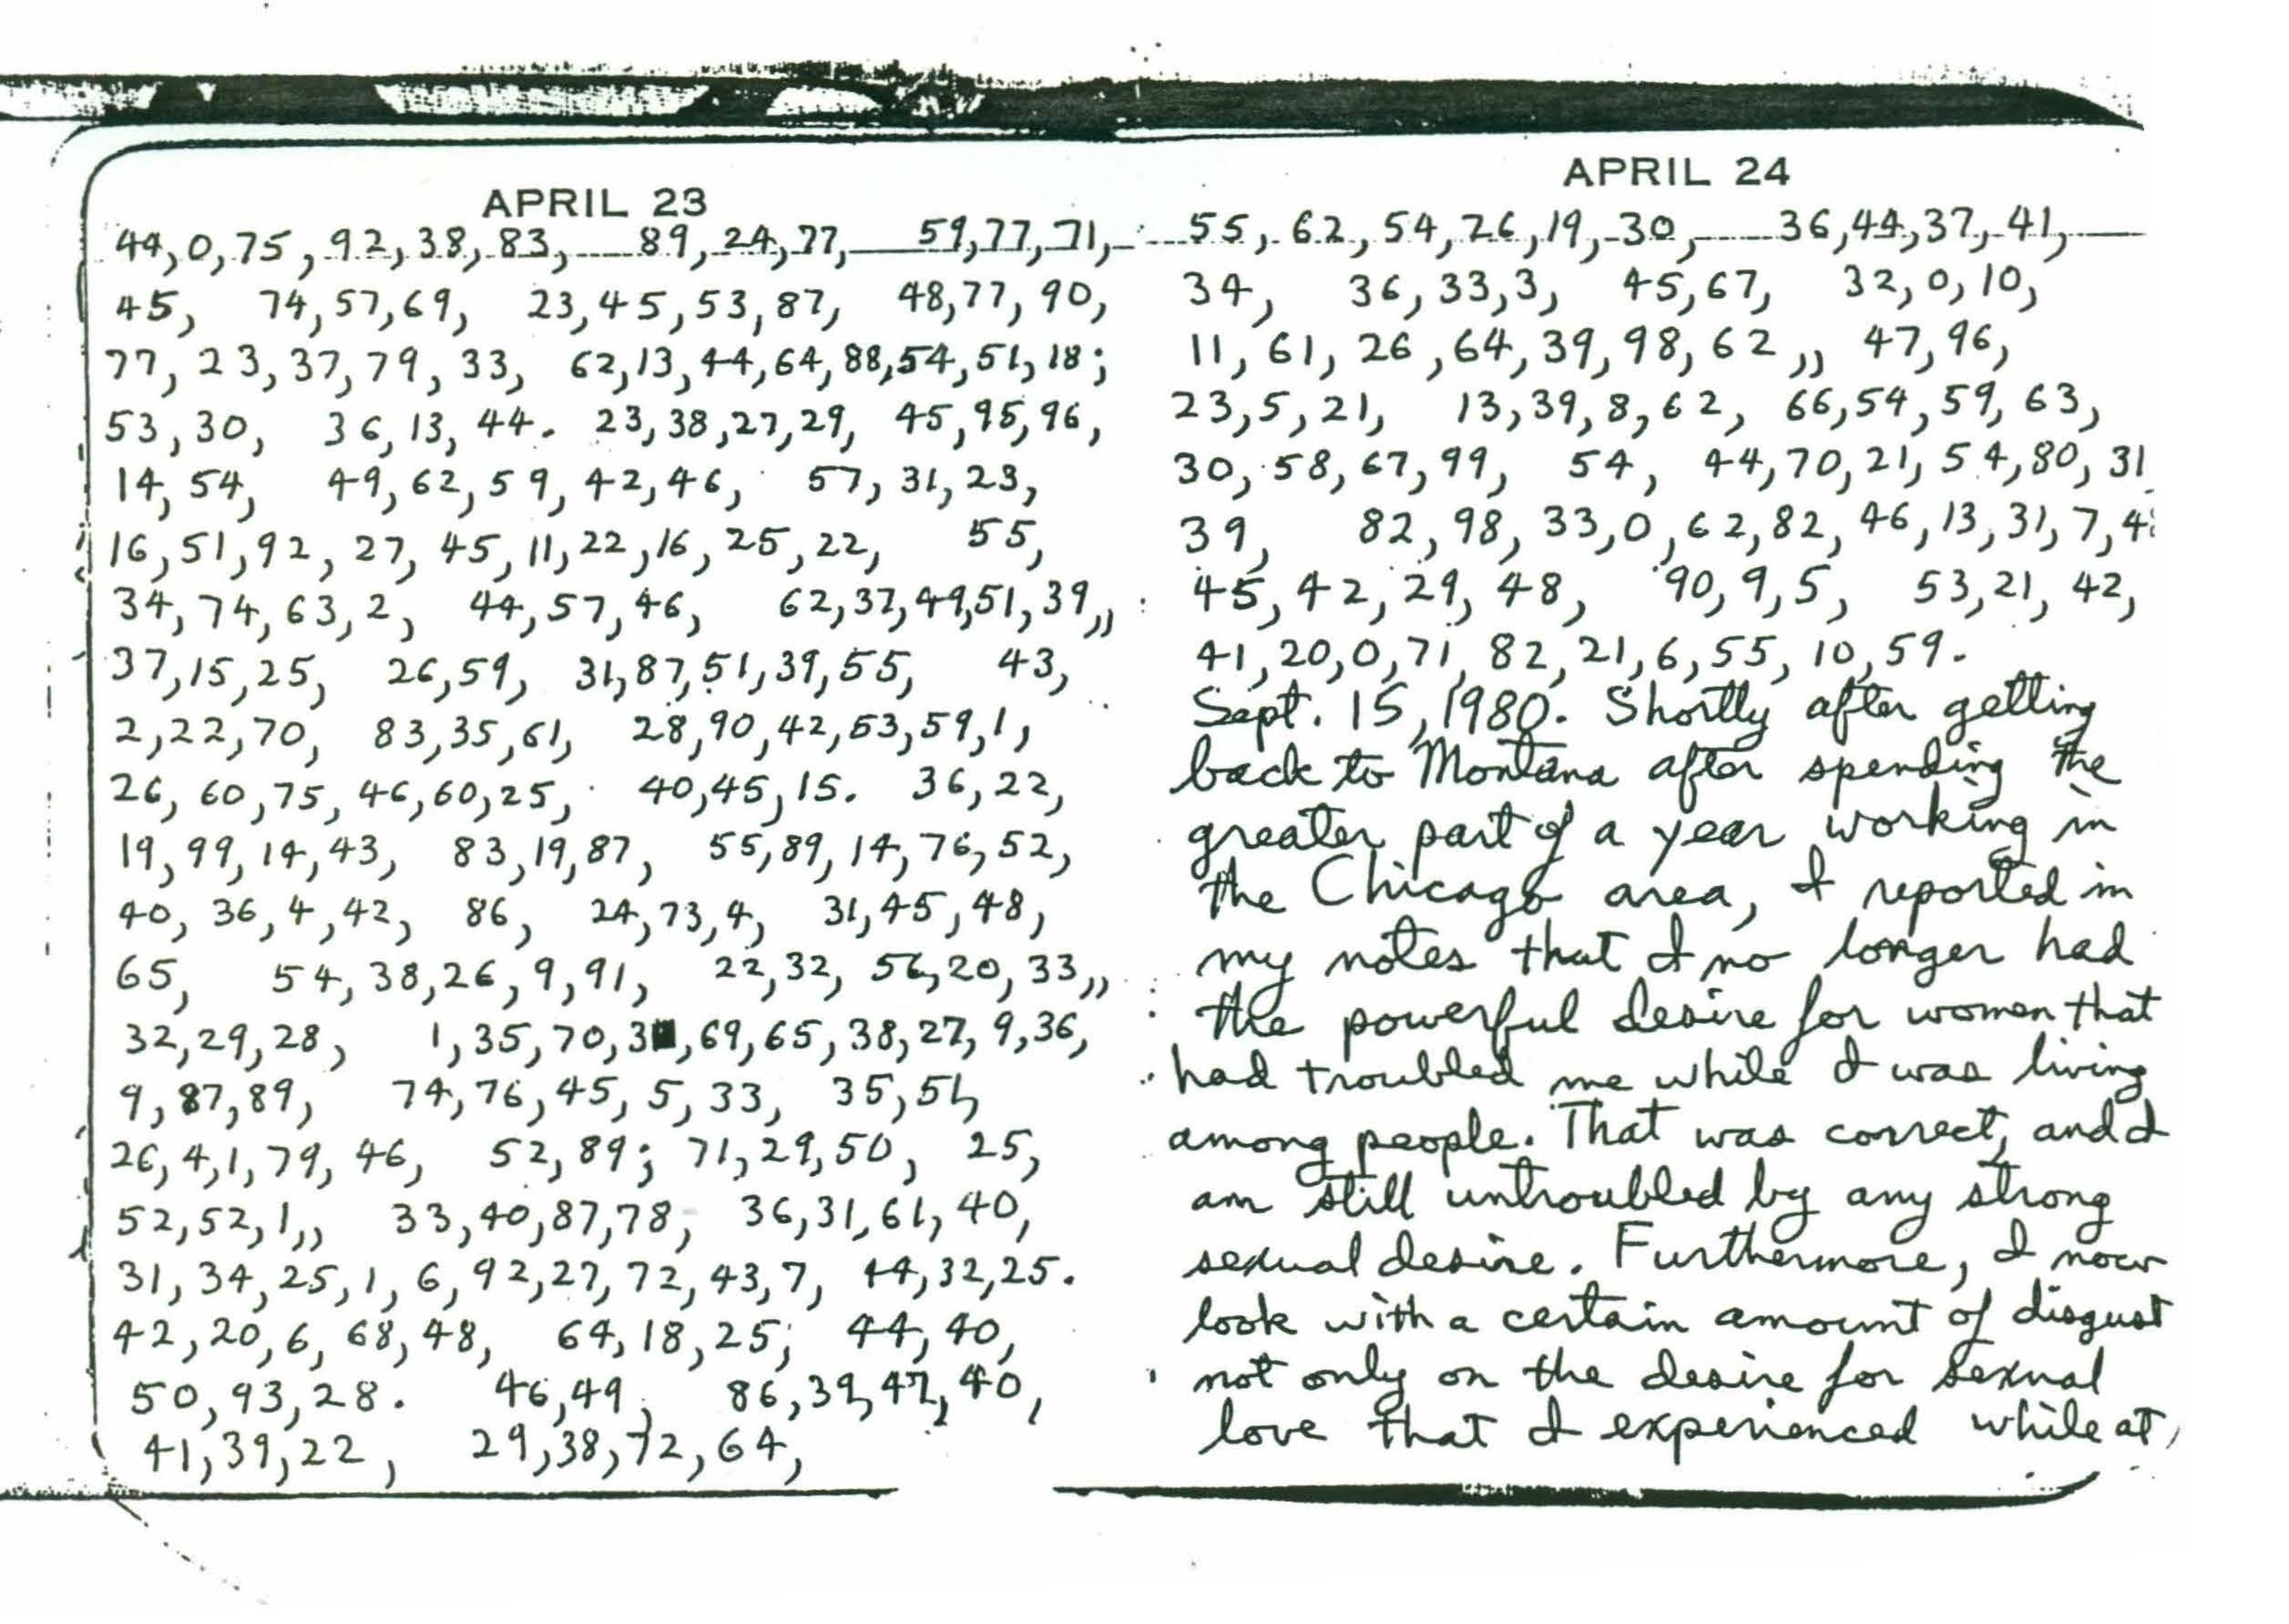 APRIL 23
44,0,75,92,38,83, 89,24,77, 59,77,71,
45, 74,57,69, 23,45,53,87, 48,77,90,
77,23,37,79,33, 62,13,44,64,88,54,51,18;
53,30, 36,13,44. 23,38,27,29, 45,95,96,
14,54, 49,62,59,42,46, 57,31,23,
16,51,92,27,45,11,22,16,25,22, 55,
34,74,63,2, 44,57,46, 62,37,49,51,39,,
37,15,25, 26,59, 31,87,51,39,55, 43,
2,22,70, 83,35,61, 28,90,42,53,59,1,
26,60,75,46,60,25, 40,45,15. 36,22,
19,99,14,43, 83,19,87, 55,89,14,76,52,
40,36,4,42, 86, 24,73,4, 31,45,48,
65, 54,38,26,9,91, 22,32,56,20,33,,
32,29,28, 1,35,70,3 ,69,65,38,27,9,36,
9,87,89, 74,76,45,5,33, 35,51,
26,4,1,79,46, 52,89; 71,29,50, 25,
52,52,1,, 33,40,87,78, 36,31,61,40,
31,34,25,1,6,92,27,72,43,7, 44,32,25.
42,20,6,68,48, 64,18,25; 44,40,
50,93,28. 46,49; 86,39,47,40,
41,39,22, 29,38,72,64,
APRIL 24
55,62,54,26,19,30, 36,44,37,41,
34, 36,33,3, 45,67, 32,0,10,
11,61,26,64,39,98,62,, 47,96,
23,5,21, 13,39,8,62, 66,54,59,63,
30,58,67,99, 54, 44,70,21,54,80,31
39, 82,98,33,0,62,82,46,13,31,7,
45,42,29,48, 90,9,5, 53,21,42,
41,20,0,71,82,21,6,55,10,59.
Sept. 15, 1980. Shortly after getting
back to Montana after spending the
greater part of a year working in
the Chicago area, I reported in
my notes that I no longer had
the powerful desire for women that
had troubled me while I was living
among people. That was correct, and I
am still untroubled by any strong
sexual desire. Furthermore, I now
look with a certain amount of disgust
not only on the desire for sexual
love that I experienced while at